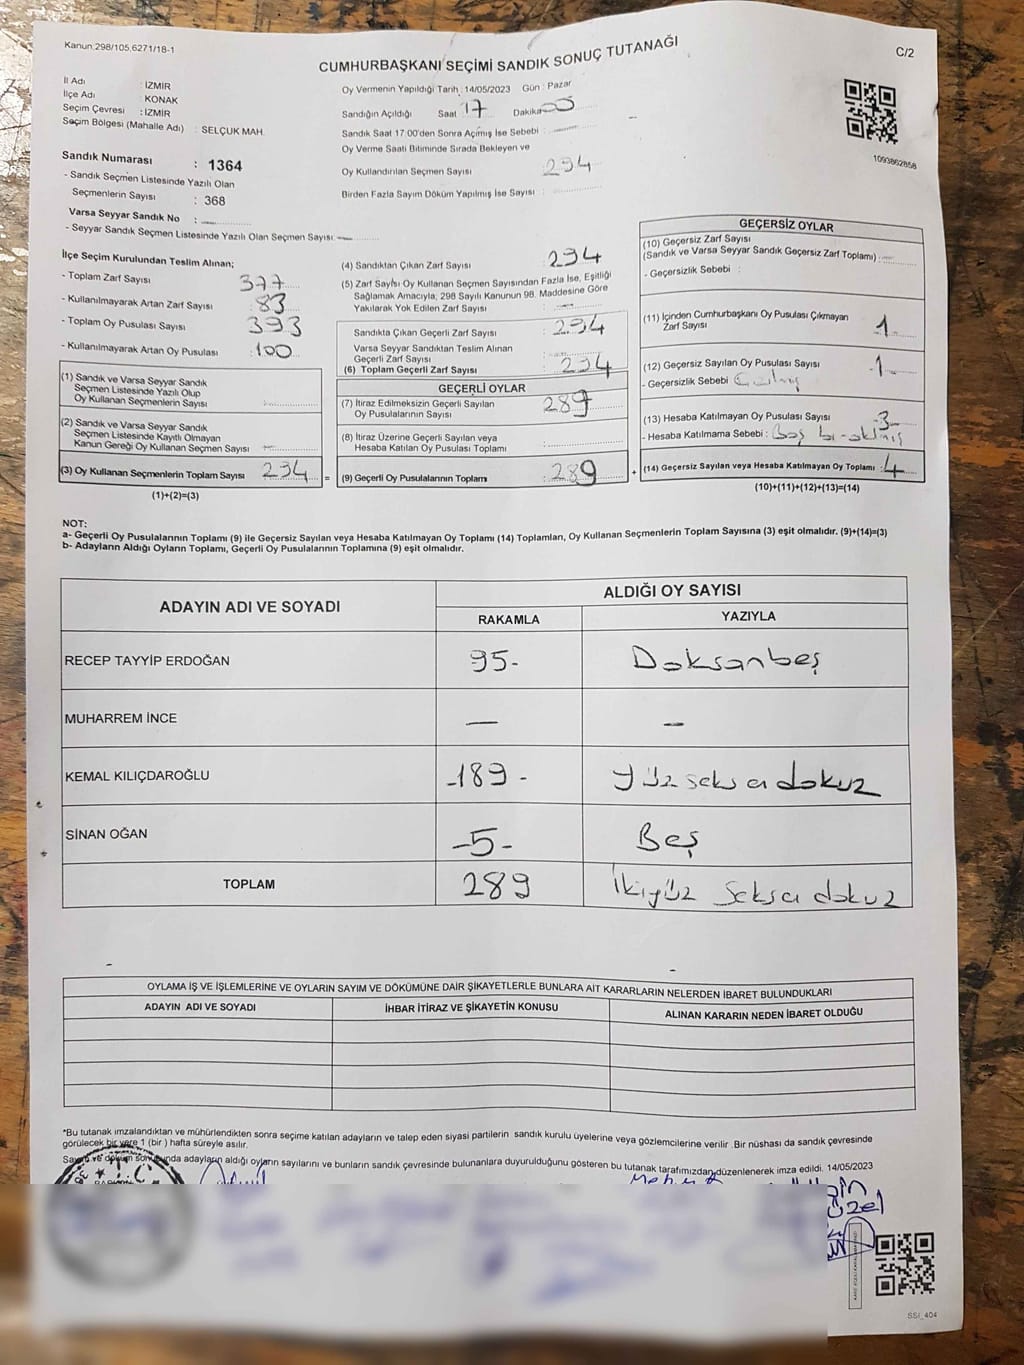 Kanun:298/105,6271/18-1
C/2
CUMHURBAŞKANI SEÇİMİ SANDIK SONUÇ TUTANAĞI
İl Adı : İZMİR
İlçe Adı : KONAK
Seçim Çevresi : İZMİR
Seçim Bölgesi (Mahalle Adı) : SELÇUK MAH.
Sandık Numarası : 1364
- Sandık Seçmen Listesinde Yazılı Olan
Seçmenlerin Sayısı : 368
Varsa Seyyar Sandık No :
- Seyyar Sandık Seçmen Listesinde Yazılı Olan Seçmen Sayısı:
Oy Vermenin Yapıldığı Tarih: 14/05/2023 Gün : Pazar
Sandığın Açıldığı Saat 17 Dakika 00
Sandık Saat 17:00'den Sonra Açılmış İse Sebebi :
Oy Verme Saati Bitiminde Sırada Bekleyen ve
Oy Kullandırılan Seçmen Sayısı : 294
Birden Fazla Sayım Döküm Yapılmış İse Sayısı :
1093862858
İlçe Seçim Kurulundan Teslim Alınan;
- Toplam Zarf Sayısı : 377
- Kullanılmayarak Artan Zarf Sayısı : 83
- Toplam Oy Pusulası Sayısı : 393
- Kullanılmayarak Artan Oy Pusulası : 100
(1) Sandık ve Varsa Seyyar Sandık
Seçmen Listesinde Yazılı Olup
Oy Kullanan Seçmenlerin Sayısı :
(2) Sandık ve Varsa Seyyar Sandık
Seçmen Listesinde Kayıtlı Olmayan
Kanun Gereği Oy Kullanan Seçmen Sayısı :
(3) Oy Kullanan Seçmenlerin Toplam Sayısı : 294
(1)+(2)=(3)
=
(4) Sandıktan Çıkan Zarf Sayısı : 294
(5) Zarf Sayısı Oy Kullanan Seçmen Sayısından Fazla İse, Eşitliği
Sağlamak Amacıyla; 298 Sayılı Kanunun 98. Maddesine Göre
Yakılarak Yok Edilen Zarf Sayısı :
Sandıkta Çıkan Geçerli Zarf Sayısı : 294
Varsa Seyyar Sandıktan Teslim Alınan
Geçerli Zarf Sayısı :
(6) Toplam Geçerli Zarf Sayısı : 294
GEÇERLİ OYLAR
(7) İtiraz Edilmeksizin Geçerli Sayılan
Oy Pusulalarının Sayısı : 289
(8) İtiraz Üzerine Geçerli Sayılan veya
Hesaba Katılan Oy Pusulaları Toplamı :
(9) Geçerli Oy Pusulalarının Toplamı : 289
+
GEÇERSİZ OYLAR
(10) Geçersiz Zarf Sayısı
(Sandık ve Varsa Seyyar Sandık Geçersiz Zarf Toplamı) :
- Geçersizlik Sebebi :
(11) İçinden Cumhurbaşkanı Oy Pusulası Çıkmayan
Zarf Sayısı : 1
(12) Geçersiz Sayılan Oy Pusulası Sayısı : 1
- Geçersizlik Sebebi :
(13) Hesaba Katılmayan Oy Pusulası Sayısı : 3
- Hesaba Katılmama Sebebi : Boş
(14) Geçersiz Sayılan veya Hesaba Katılmayan Oy Toplamı : 4
(10)+(11)+(12)+(13)=(14)
NOT:
a- Geçerli Oy Pusulalarının Toplamı (9) ile Geçersiz Sayılan veya Hesaba Katılmayan Oy Toplamı (14) Toplamları, Oy Kullanan Seçmenlerin Toplam Sayısına (3) eşit olmalıdır. (9)+(14)=(3)
b- Adayların Aldığı Oyların Toplamı, Geçerli Oy Pusulalarının Toplamına (9) eşit olmalıdır.
ADAYIN ADI VE SOYADI
ALDIĞI OY SAYISI
RAKAMLA YAZIYLA
RECEP TAYYİP ERDOĞAN 95- Doksanbeş
MUHARREM İNCE — —
KEMAL KILIÇDAROĞLU -189- yüz seksen dokuz
SİNAN OĞAN -5- Beş
TOPLAM 289 İkiyüz Seksen dokuz
OYLAMA İŞ VE İŞLEMLERİNE VE OYLARIN SAYIM VE DÖKÜMÜNE DAİR ŞİKAYETLERLE BUNLARA AİT KARARLARIN NELERDEN İBARET BULUNDUKLARI
ADAYIN ADI VE SOYADI İHBAR İTİRAZ VE ŞİKAYETİN KONUSU ALINAN KARARIN NEDEN İBARET OLDUĞU
*Bu tutanak imzalandıktan ve mühürlendikten sonra seçime katılan adayların ve talep eden siyasi partilerin sandık kurulu üyelerine veya gözlemcilerine verilir .Bir nüshası da sandık çevresinde
görülecek bir yere 1 (bir ) hafta süreyle asılır.
Sayım ve döküm sonucunda adayların aldığı oyların sayılarını ve bunların sandık çevresinde bulunanlara duyurulduğunu gösteren bu tutanak tarafımızdan düzenlenerek imza edildi. 14/05/2023
T.C
SSİ_404